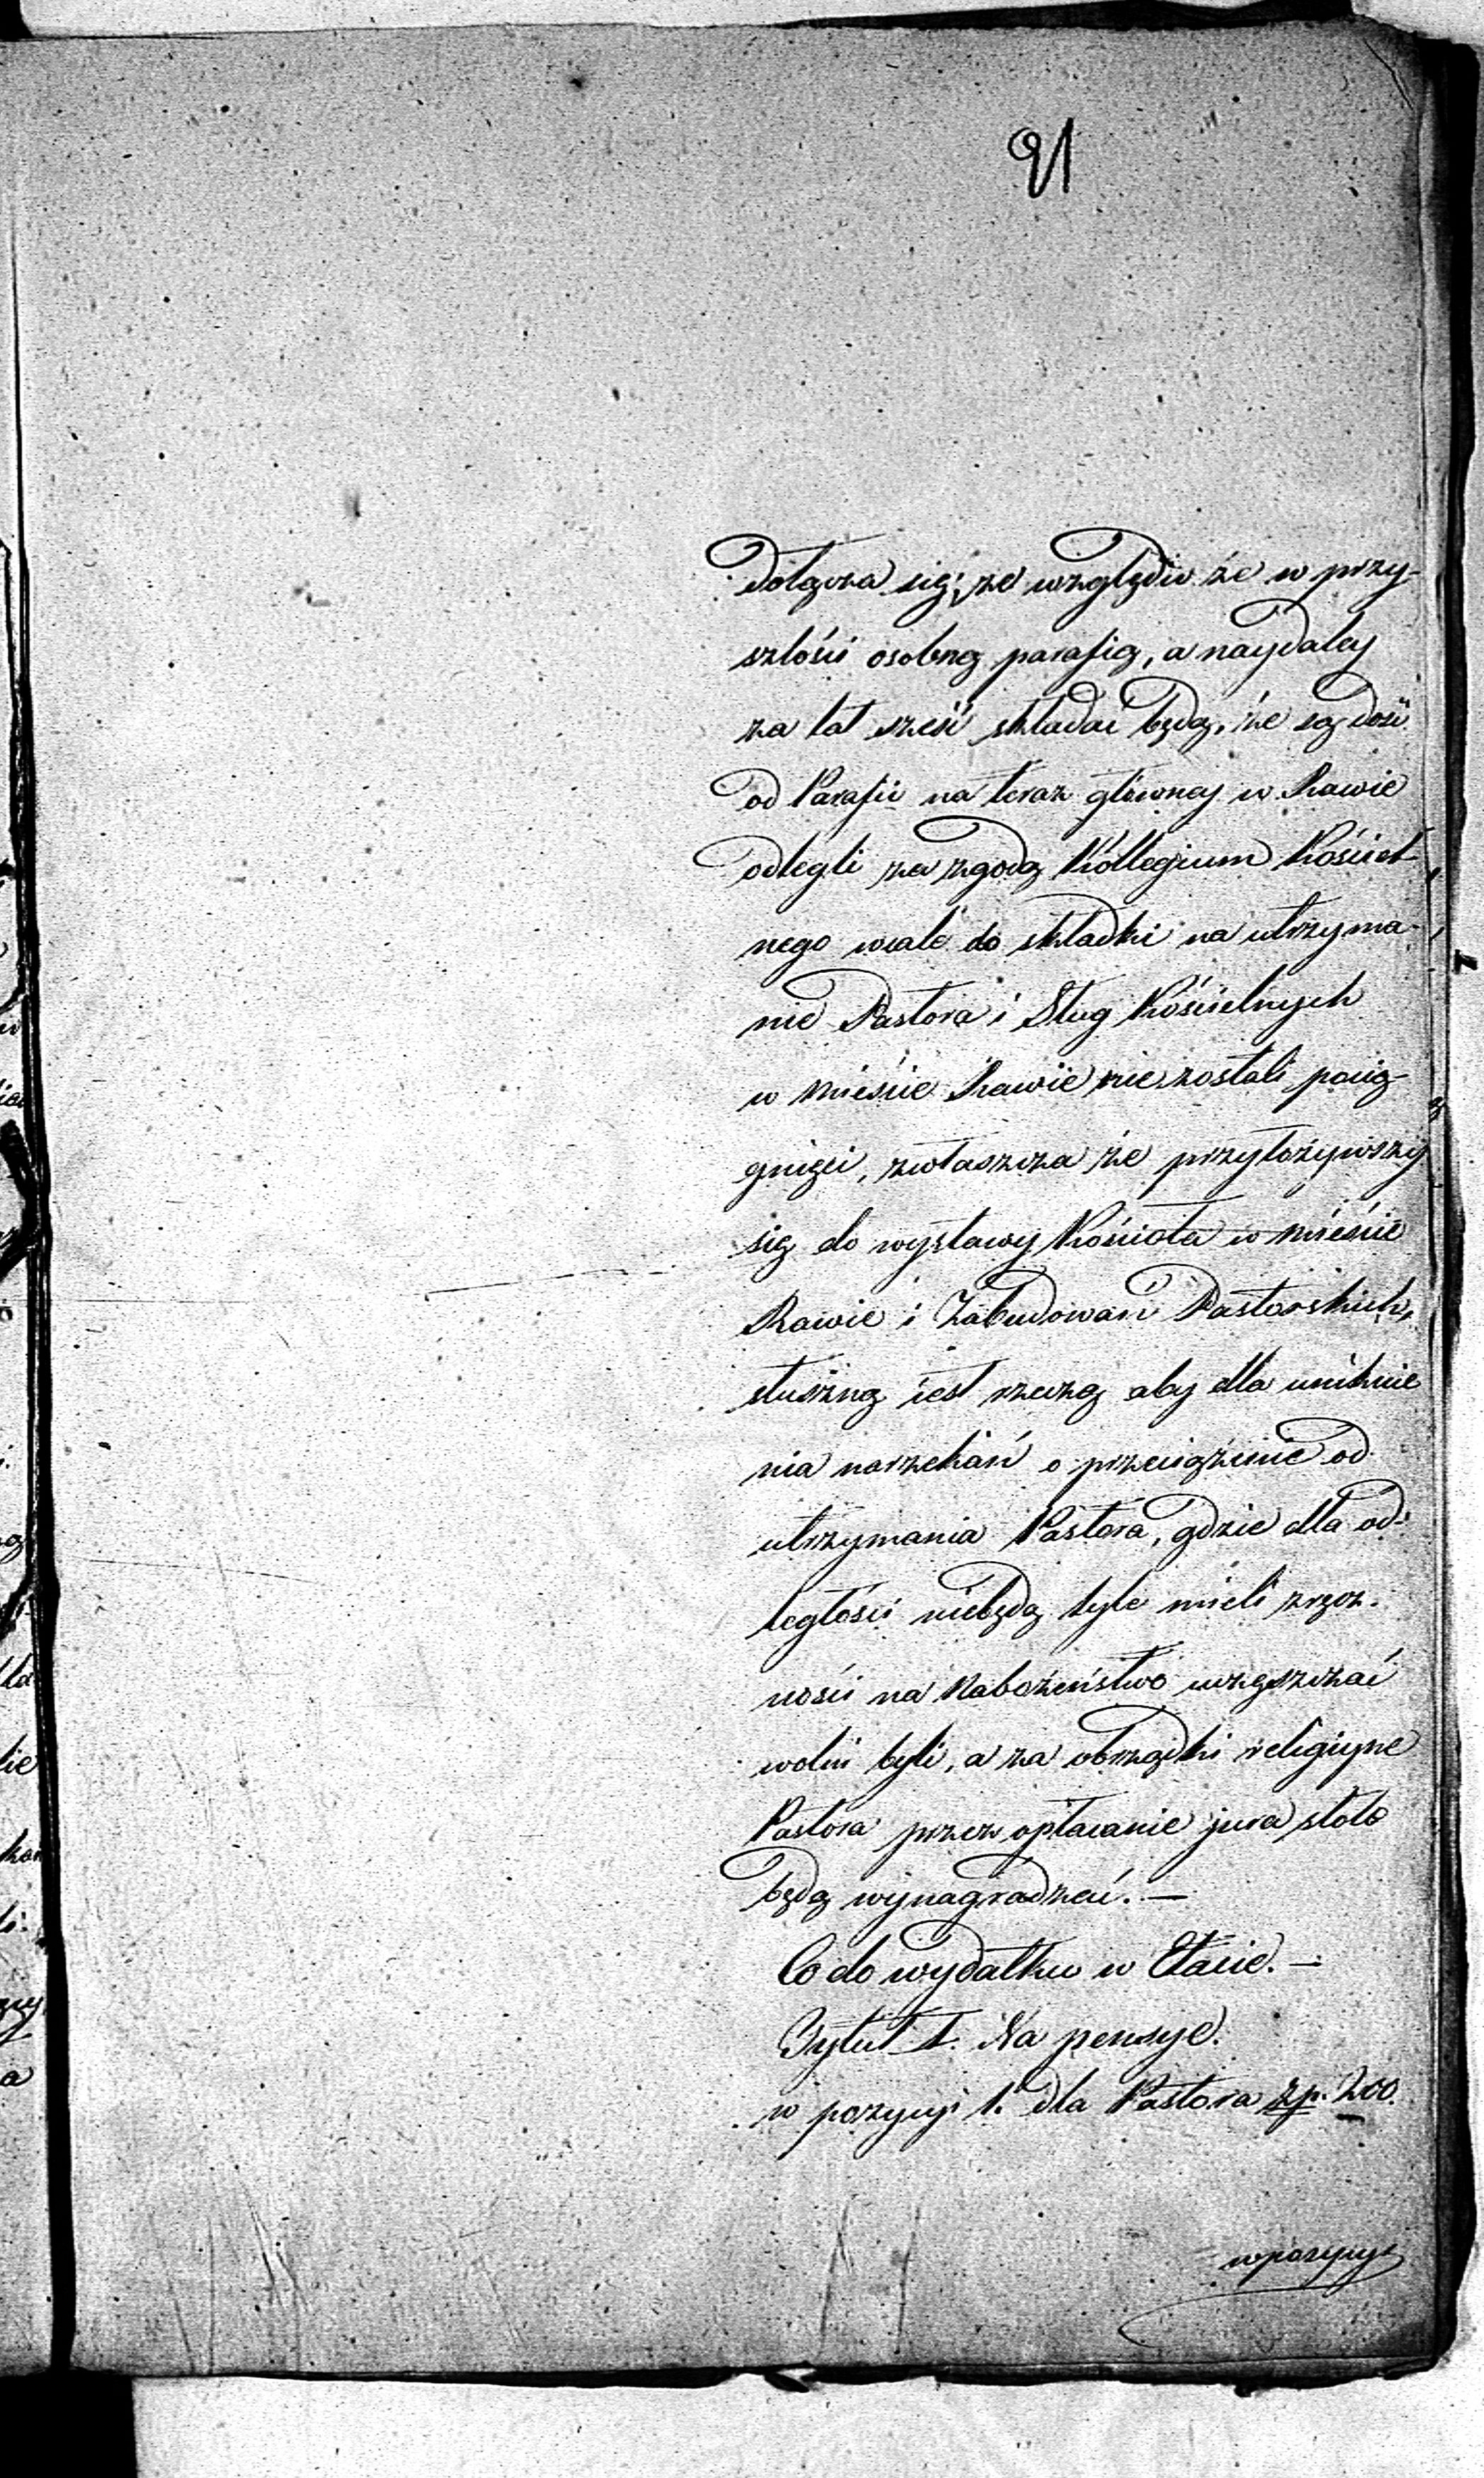 91
dołącza się; ze względu że w przy-
szłości osobną parafią, a naydaley
za lat sześć składać będą, że są dość
od Parafii na teraz główney w Rawie
odlegli za zgodą Kollegium Kościel-
nego wcale do składki na utrzyma-
nie Pastora i Sług Kościelnych
w mieście Rawie nie zostali pocią-
gnięci, zwłaszcza że przyłożywszy
się do wystawy Kościoła w mieście
Rawie i Zabudowań Pastorskich,
słuszną iest rzeczą aby dla uniknie
nia narzekań o przeciążenie od
utrzymania Pastora, gdzie dla od-
ległości niebędą tyle mieli zręcz-
ności na Nabożeństwo uczęszczać
wolni byli, a za obrządki religiyne
Pastora przez opłacanie jura stolo
będą wynagradzać. —
Co do wydatku w Etacie. —
Tytuł I. Na pensye.
w pozycyi 1. dla Pastora zp. 200.
w pozycyi